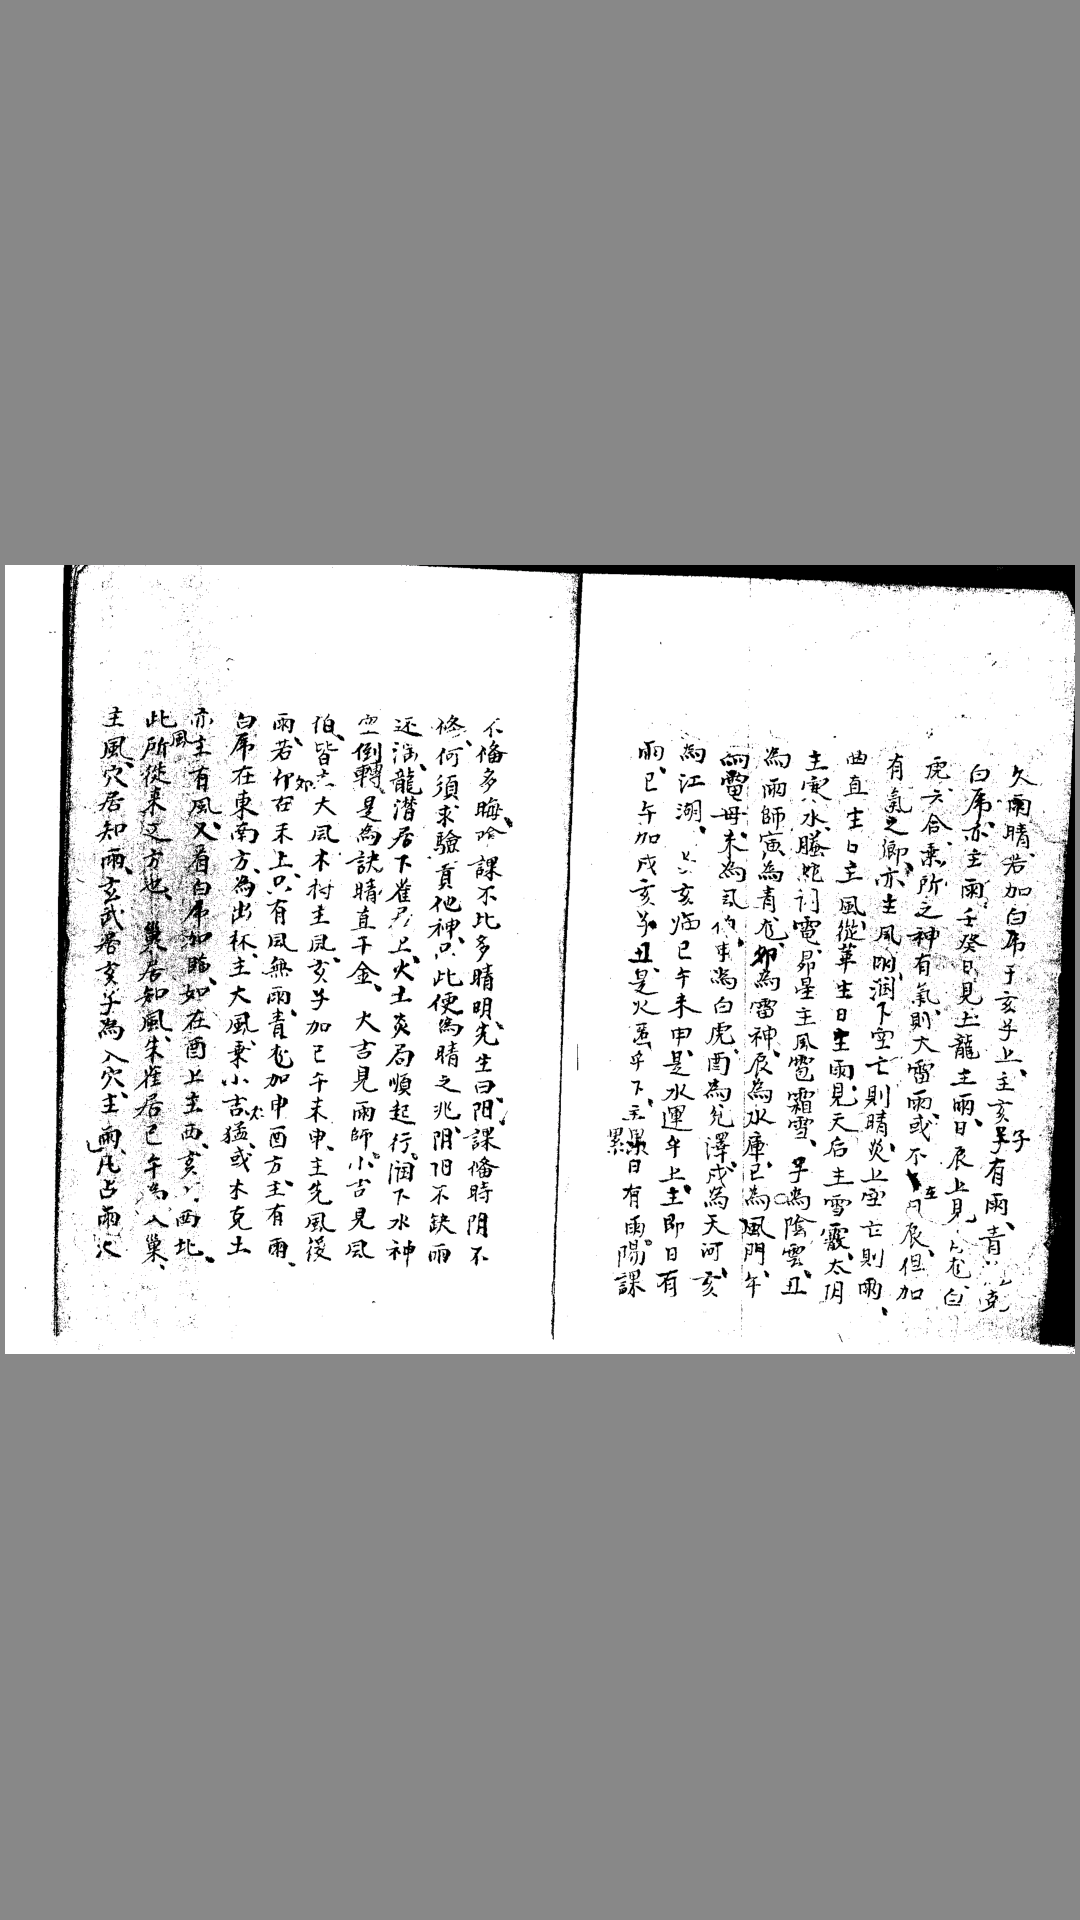 久雨晴、若加白虎于亥子上、主亥子有雨、青
白虎、亦主雨、壬癸日見土龍主雨、日辰上見 尨白
虎、六合、乘所之神有氣、則大雷雨或不 在 辰、但加
有氣之鄉、亦主風明、潤下空亡則晴、炎上空亡則雨、
曲直主日主風、從革主日主雨、見天后主雪霰、太阴
主 水、騰蛇 電、昴星主風雹霜雪、子為陰雲、丑
為雨師、寅為青尨、卯為雷神、辰為水庫、巳為風門、午
為電母、未為 伯、申為白虎、酉為兌澤、戌為天河、亥
為江湖、 亥临巳午未申、是水運午上、主即日有
雨、巳午加戌亥子丑、是火 乎下、主累日有雨、陽課
不偹多晦、唫課不比多晴明、先生曰、阳課偹時阴不
俻、何須求驗責他神、只此便為晴之兆、阴阳不缺雨
还滴、龍潛居下雀 上、火土炎局順起行、润下水神
空倒轉、是為訣、晴直千金、大吉見雨師、小吉見風
伯、皆主大風、木 主風、亥子加巳午未申、主先風後
雨、若卯在未上、只有風無雨、青尨加申酉方、主有雨、
白虎在東南方、為出林、主大風、乘小吉、猛、或木克土
亦主有風、又看白虎加臨、如在酉上主西、亥 西北、
此風所從来之方也、巢居知風、朱雀居巳午為入巢、
主風、穴居知雨、玄武居亥子為入穴、主雨、凡占雨